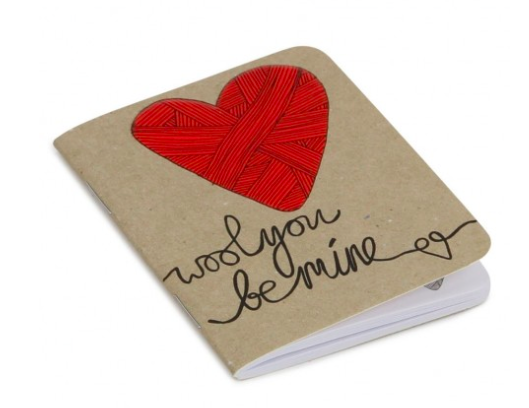 wool you
be mine